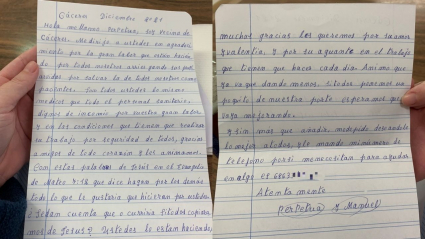 Cáceres Diciembre
Hola me llamo Perpetua, soy vecina de
Cáceres. Me dirijo a ustedes en agradeci
miento por la gran labor que están hacien
do por todos nosotros arriesgando sus
vidas por salvar la de todos nosotros como
pacientes. Son todos ustedes de mismo
medicos que todo el personal sanitario.
dignos de incemio por vuestra gran labor
y en las condiciones que tienen que realizar
su trabajo por seguridad de todos, gracias
amigos de todo corazón y los animamos.
Con estas palabras de Jesús en el
de Mateo 7:12 que dice hagan por los demás
todo lo que les gustaria que hicieran por ustedes
¿Se dan cuenta que o curriria si todos copiara
mos de Jesus? Ustedes lo estan haciendo
muchas gracias los queremos por su amor
y valentia. Y por su aguante en el trabajo
que tienen que hacer cada dia. Animo que
ya va que dando menos. Si todos ponemos un
poquito de nuestra parte esperamos que
vaya mejorando.
Y sin mas que añadir, me despido deseandole
lo mejor a todos y le mando mi numero de
telefono por si me necesitan para ayudar
en algo es
Atentamente
Perpetua y Manuel